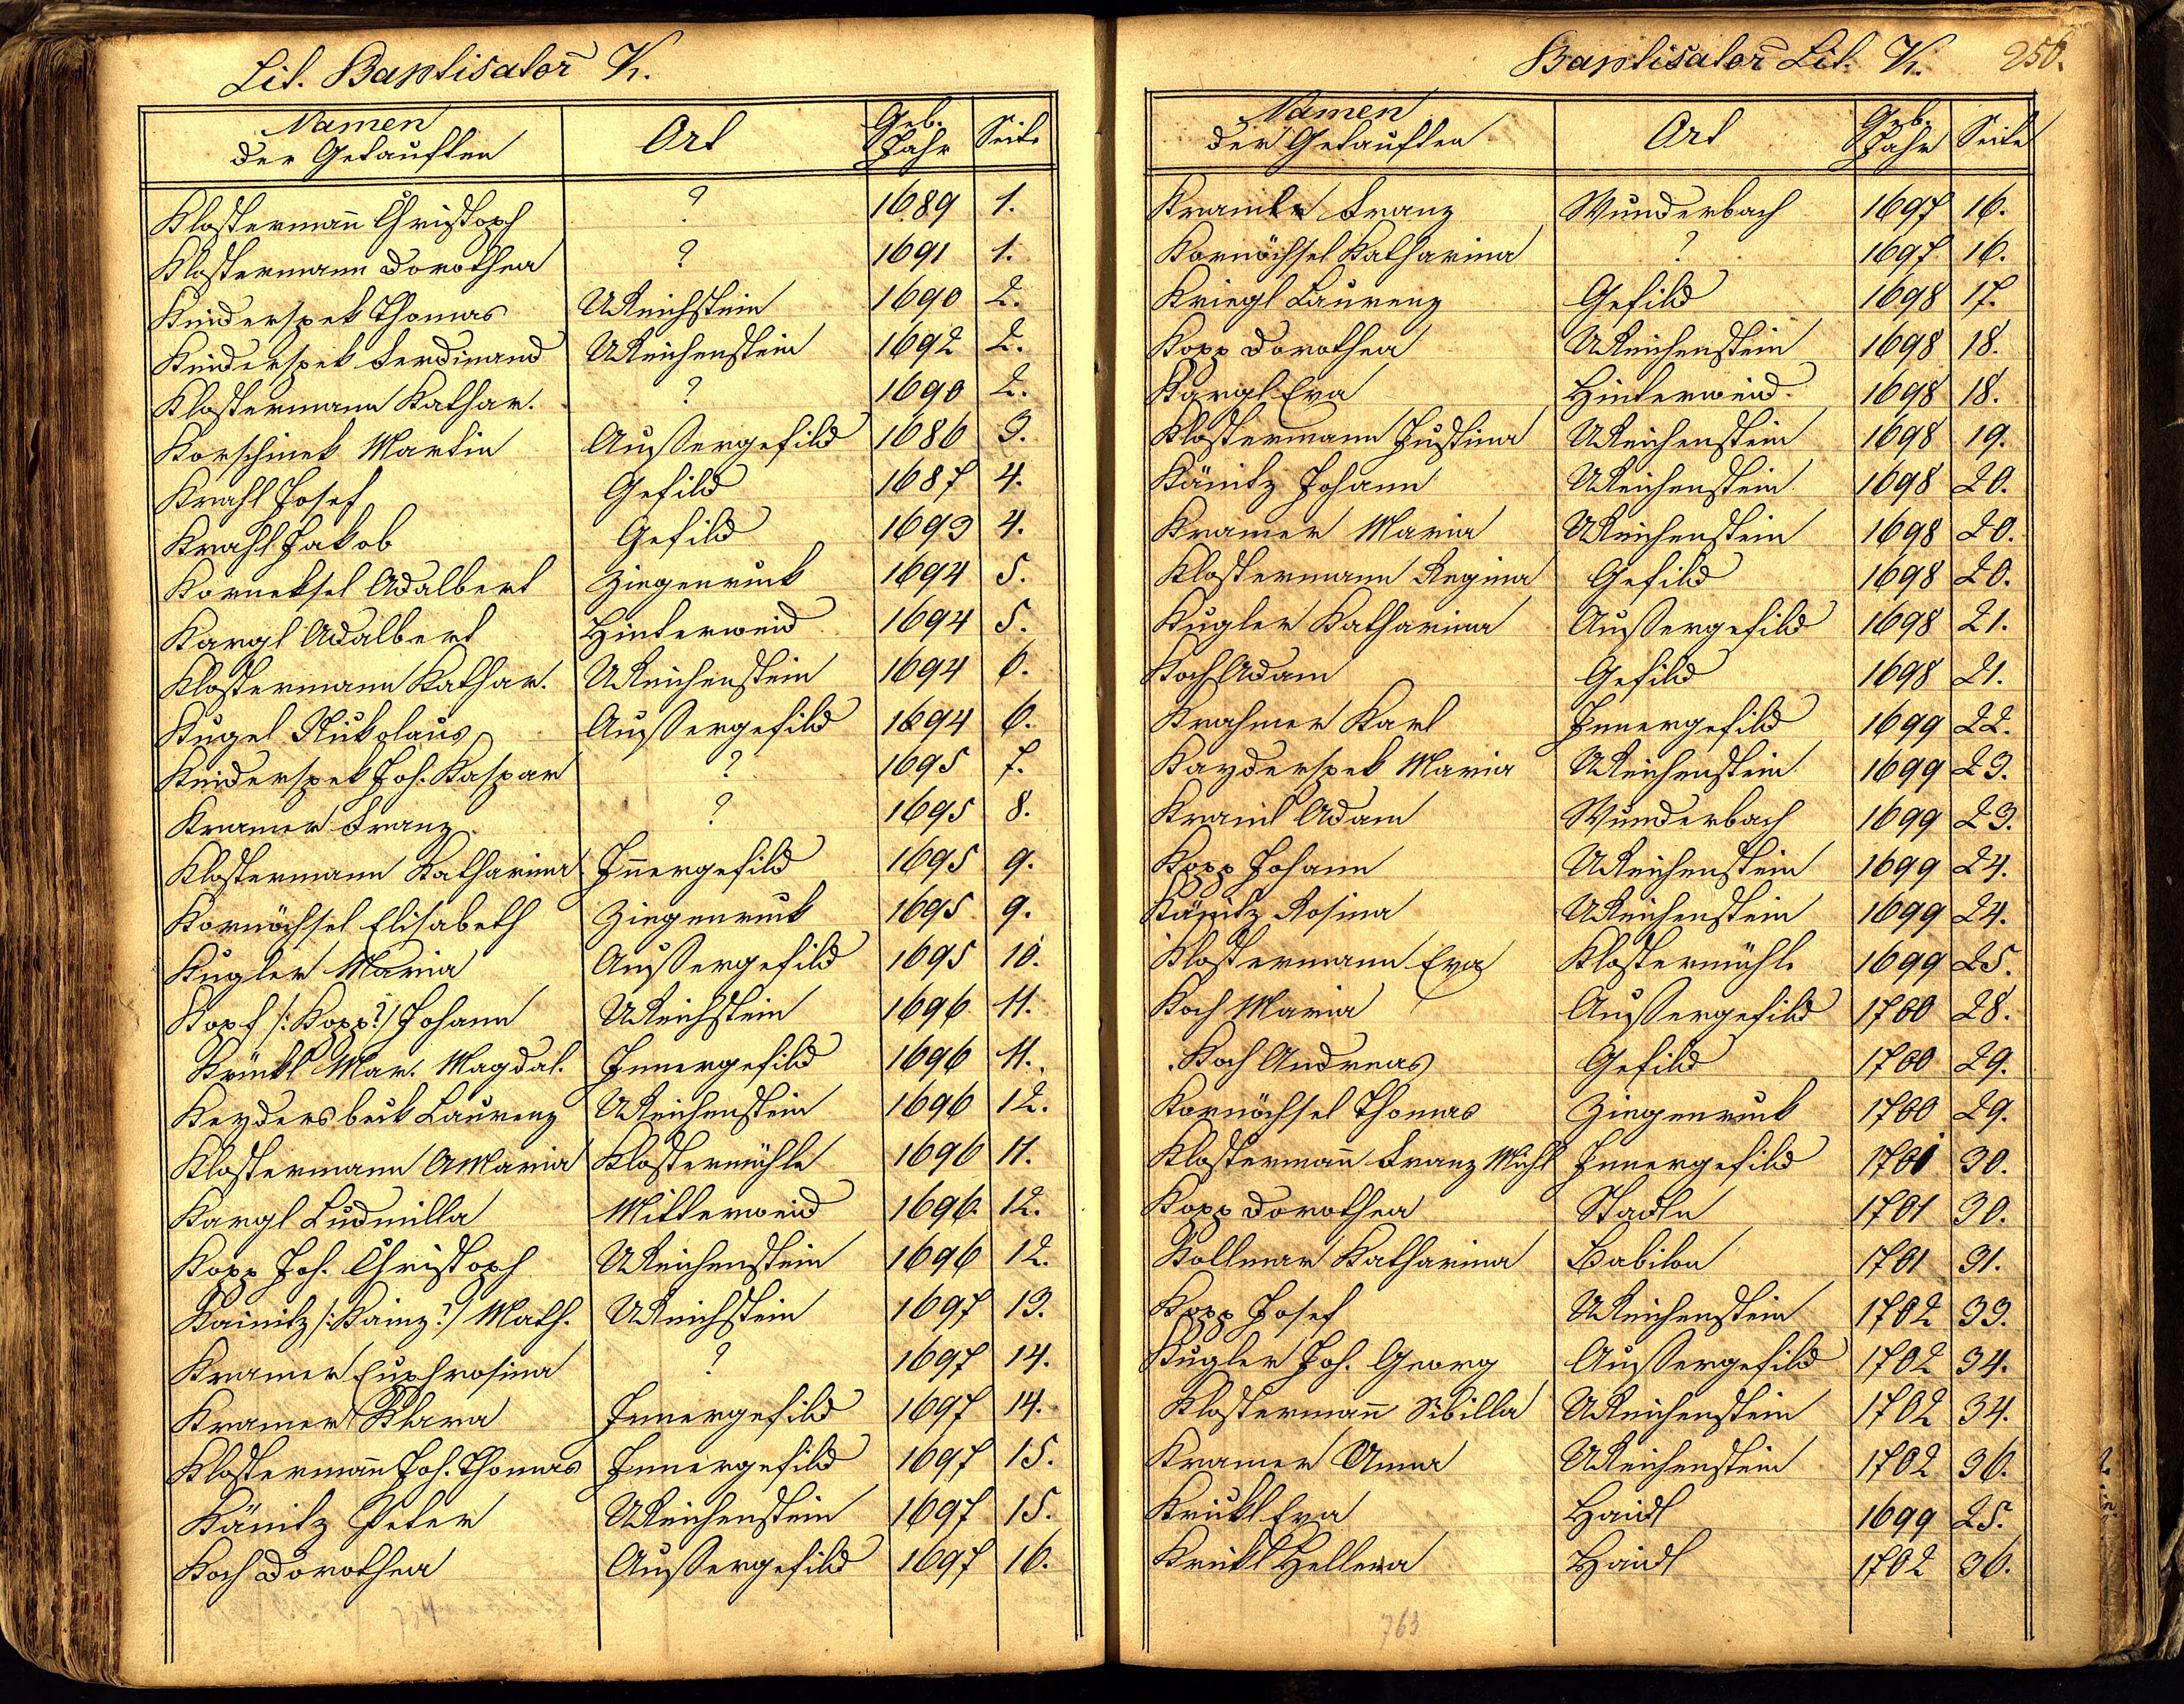 Lit. Baptisator̄ K.
Namen der Getauften | Ort | Geb. Jahr | Seite
Klostermañ Christoph | ? | 1689 | 1.
Klostermann Dorothea | ? | 1691 | 1.
Kneiderspek Thomas | UReichstein | 1690 | 2.
Kneiderspek Ferdinand | UReichenstein | 1692 | 2.
Klostermann Kathar. | ? | 1690 | 2.
Korschinek Martin | Außergefild | 1686 | 3.
Krahl Josef | Gefild | 1687 | 4.
Krahl Jakob | Gefild | 1693 | 4.
Korneksel Adalbert | Ziegenruck | 1694 | 5.
Kargl Adalbert | Hinterweid | 1694 | 5.
Klostermann Kathar. | UReichenstein | 1694 | 6.
Kugel Nikolaus | Außergefild | 1694 | 6.
Kneiderspek Joh. Kaspar | ? | 1695 | 7.
Kramer Franz | ? | 1695 | 8.
Klostermann Katharina | Iñergefild | 1695 | 9.
Kornöchsel Elisabeth | Ziegenruck | 1695 | 9.
Kugler Maria | Außergefild | 1695 | 10.
Kopf /: Kopp? / Johann | UReichstein | 1696 | 11.
Mar. Magdal. | Innergefild | 1696 | 11.
Keydersbeck Laurenz | UReichenstein | 1696 | 12.
Klostermann AMaria | Klostermühle | 1696 | 11.
Kargl Ludmilla | Mitterweid | 1696. | 12.
Kopp Joh. Christoph | UReichenstein | 1696 | 12.
Kainitz /: Kainz? / Math. | UReichstein | 1697 | 13.
Kramer Euphrosina | ? | 1697 | 14.
Kramer Klara | Innergefild | 1697 | 14.
Klostermañ Joh. Thomas | Innergefild | 1697 | 15.
Känitz Peter | UReichenstein | 1697 | 15.
Koch Dorothea | Außergefild | 1697 | 16.
Baptisator̄ Lit. K. 250.
Namen der Getauften | Ort | Geb. Jahr | Seite
Franz | Wunderbach | 1697 | 16.
Kornöchsel Katharina | ? | 1697 | 16.
Kriegl Laurenz | Gefild | 1698 | 17.
Kopp Dorothea | UReichenstein | 1698 | 18.
Kargl Eva | Hinterweid | 1698 | 18.
Klostermann Justina | UReichenstein | 1698 | 19.
Känitz Johann | UReichenstein | 1698 | 20.
Kramer Maria | UReichenstein | 1698 | 20.
Klostermann Regina | Gefild | 1698 | 20.
Kugler Katharina | Außergefild | 1698 | 21.
Koch Adam | Gefild | 1698 | 21.
Krahmer Karl | Innergefild | 1699 | 22.
Kayderspek Maria | UReichenstein | 1699 | 23.
Adam | Wunderbach | 1699 | 23.
Kopp Johann | UReichenstein | 1699 | 24.
Känitz Rosina | UReichenstein | 1699 | 24.
Klostermann Eva | Klostermühle | 1699 | 25.
Koch Maria | Außergefild | 1700 | 28.
Koch Andreas | Gefild | 1700 | 29.
Kornöchsel Thomas | Ziegenruck | 1700 | 29.
Klostermañ Franz Michl | Innergefild | 1701 | 30.
Kopp Dorothea | Stadln | 1701 | 30.
Kollmar Katharina | Babilon | 1701 | 31.
Kopp Josef | UReichenstein | 1702 | 33.
Kugler Joh. Georg | Außergefild | 1702 | 34.
Klostermañ Sibilla | UReichenstein | 1702 | 34.
Kramer Anna | UReichenstein | 1702 | 36.
Krickl Eva | Haidl | 1699 | 25.
Krickl Hellena | Haidl | 1702 | 36.
763